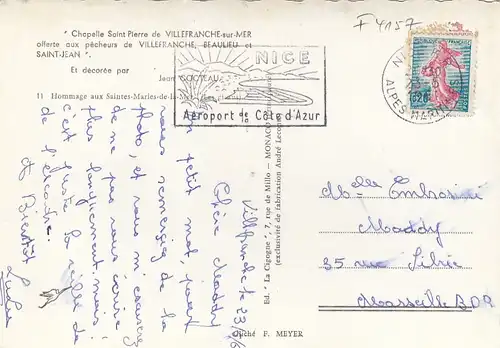 " Chapelle Saint Pierre de VILLEFRANCHE-sur-MER
offerte aux pêcheurs de VILLEFRANCHE, BEAULIEU et
SAINT-JEAN ".
Et décorée par
Jean COCTEAU
11 Hommage aux Saintes-Maries-de-la-Mer
F 4157
NICE
Aéroport de la Côte d'Azur
ALPES MARIT
0,20
Ed. " La Cigogne ", 7, rue de Millo - MONACO
(exclusivité de fabrication André Lecon
Cliché F. MEYER
Villefranche 23/
Chère Maddy
un petit mot pour
vous remercier de la
photo, et vous m'excuserez
de ne pas vous écrire
plus longuement mais
c'est juste la veille de
l'
A Bientôt
Melle
Maddy
35 rue
Marseille BDR